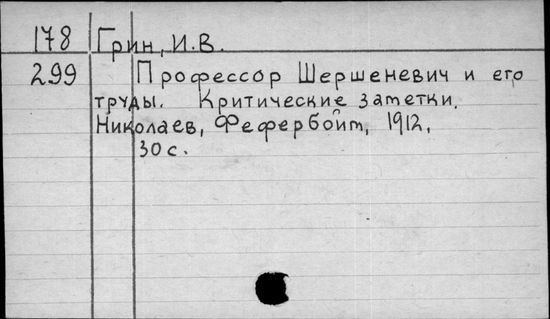 178 Грин, И.В.
299 Профессор Шершеневич и его
труды. Критические заметки.
Николаев, Фефербойт, 1912,
30 с.